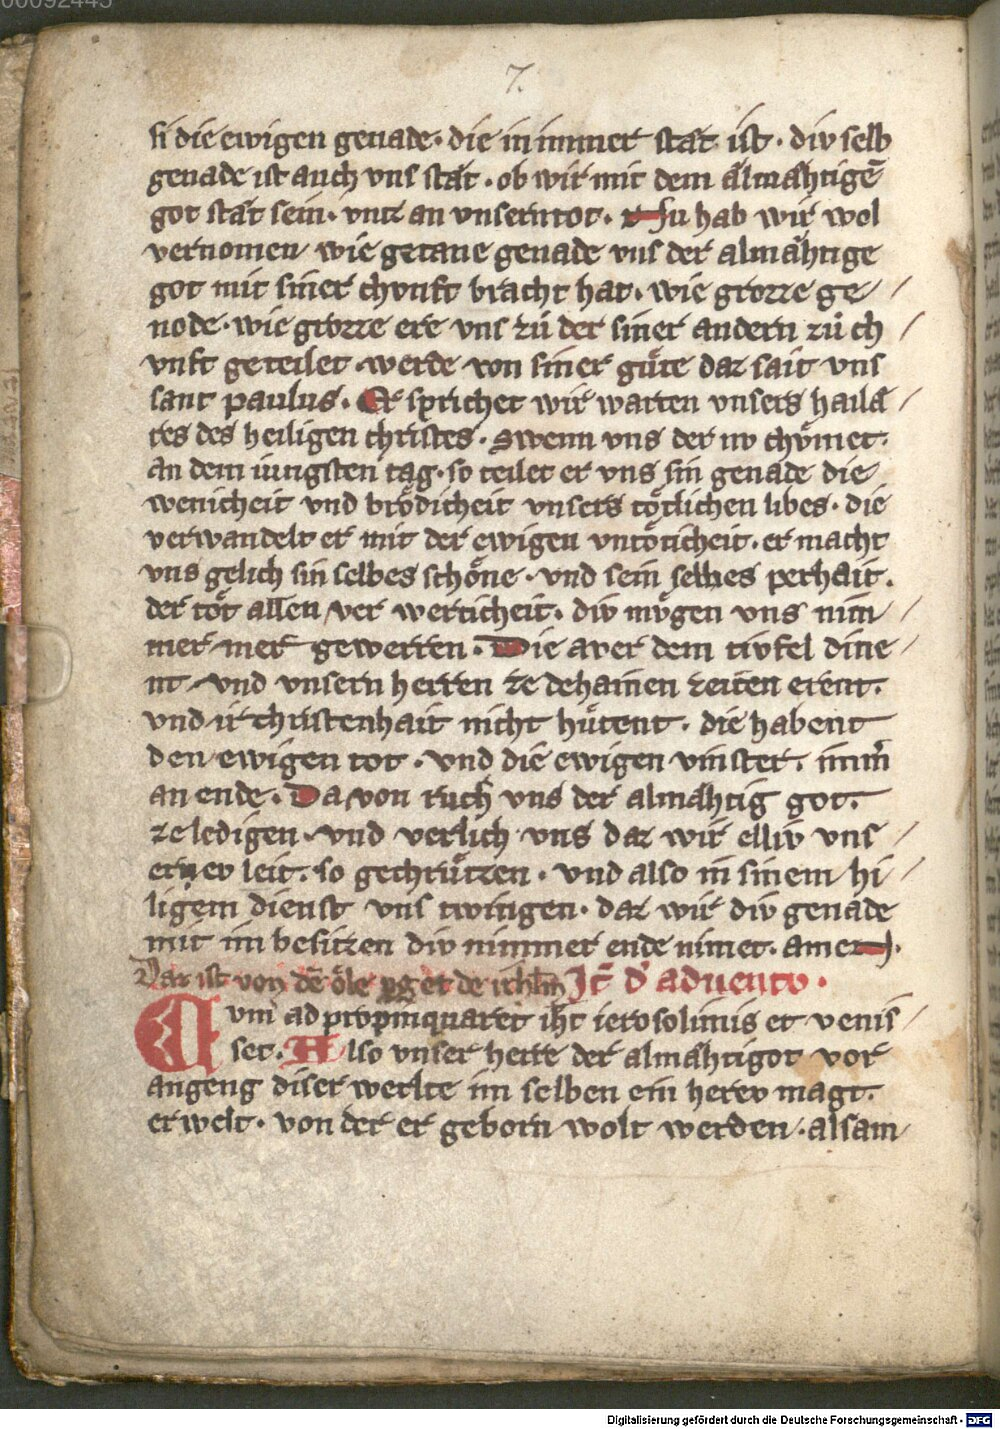 00092445
7.
si die ewigen genade· die in immer stæt ist · div selb
genade ist auch vns stæt · ob wir mit dem almæhtigē
got stæt sein· vntz an vnsern tot· Nu hab wir wol
vernomen wie getane genade vns der almæhtige
got mit siner chvnft bracht hat· wie grozze ge /
node· wie grozze ere vns zů der siner andern zů ch /
vnft geteilet werde von siner gůte daz sait vns
sant paulus· Er sprichet wir warten vnsers haila /
tes des heiligen christes· Swenn vns der nv chömet·
an dem iungsten tag· so teilet er vns sin genade die
wenicheit vnd brödicheit vnsers tötlichen libes· die
verwandelt er mit der ewigen vntöticheit· er macht
vns gelich sin selbes schöne· vnd sein selbes perhait·
der töt allen ver werticheit· div mvgen vns nim /
mer mer gewerren· Die aver dem tivfel dine /
nt vnd vnsern herren ze dehainen zeiten erent·
vnd ir christenhait nicht hůtent· die habent
den ewigen tot· vnd die ewigen vinster· imm̄
an ende· Da von ruch vns der almæhtig got·
ze ledigen· vnd verlich vns daz wir elliv vns /
erv leit· so gechrůtzen· vnd also in sinem hi /
ligem dienst vns twingen· daz wir div genade
mit im besitzen div nimmer ende nimet· amen·
Daz ist von dē öle Jt̄ d' aduento·
Cvm ad propinquaret ihc ierosolimis et venis /
set· Also vnser herre der almæhtigot vor
angeng diser werlte im selben ein herev magt·
erwelt· von der er geborn wolt werden· alsam
Digitalisierung gefördert durch die Deutsche Forschungsgemeinschaft - DFG